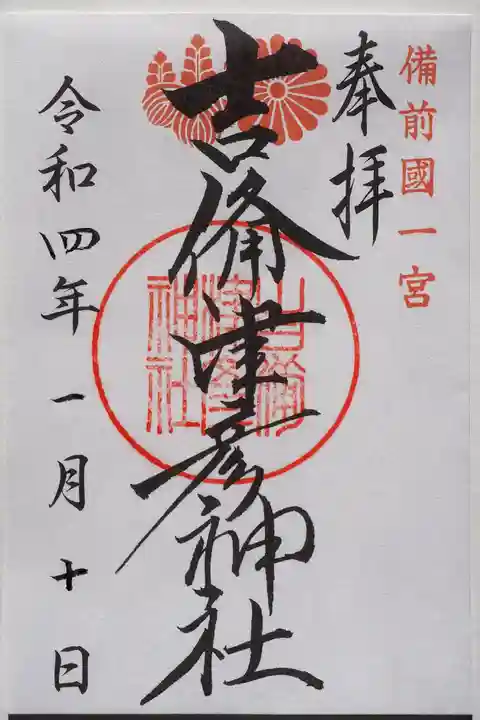 備前國一宮
奉拝
吉備津彦神社
吉備
津彦
神社
令和四年一月十日